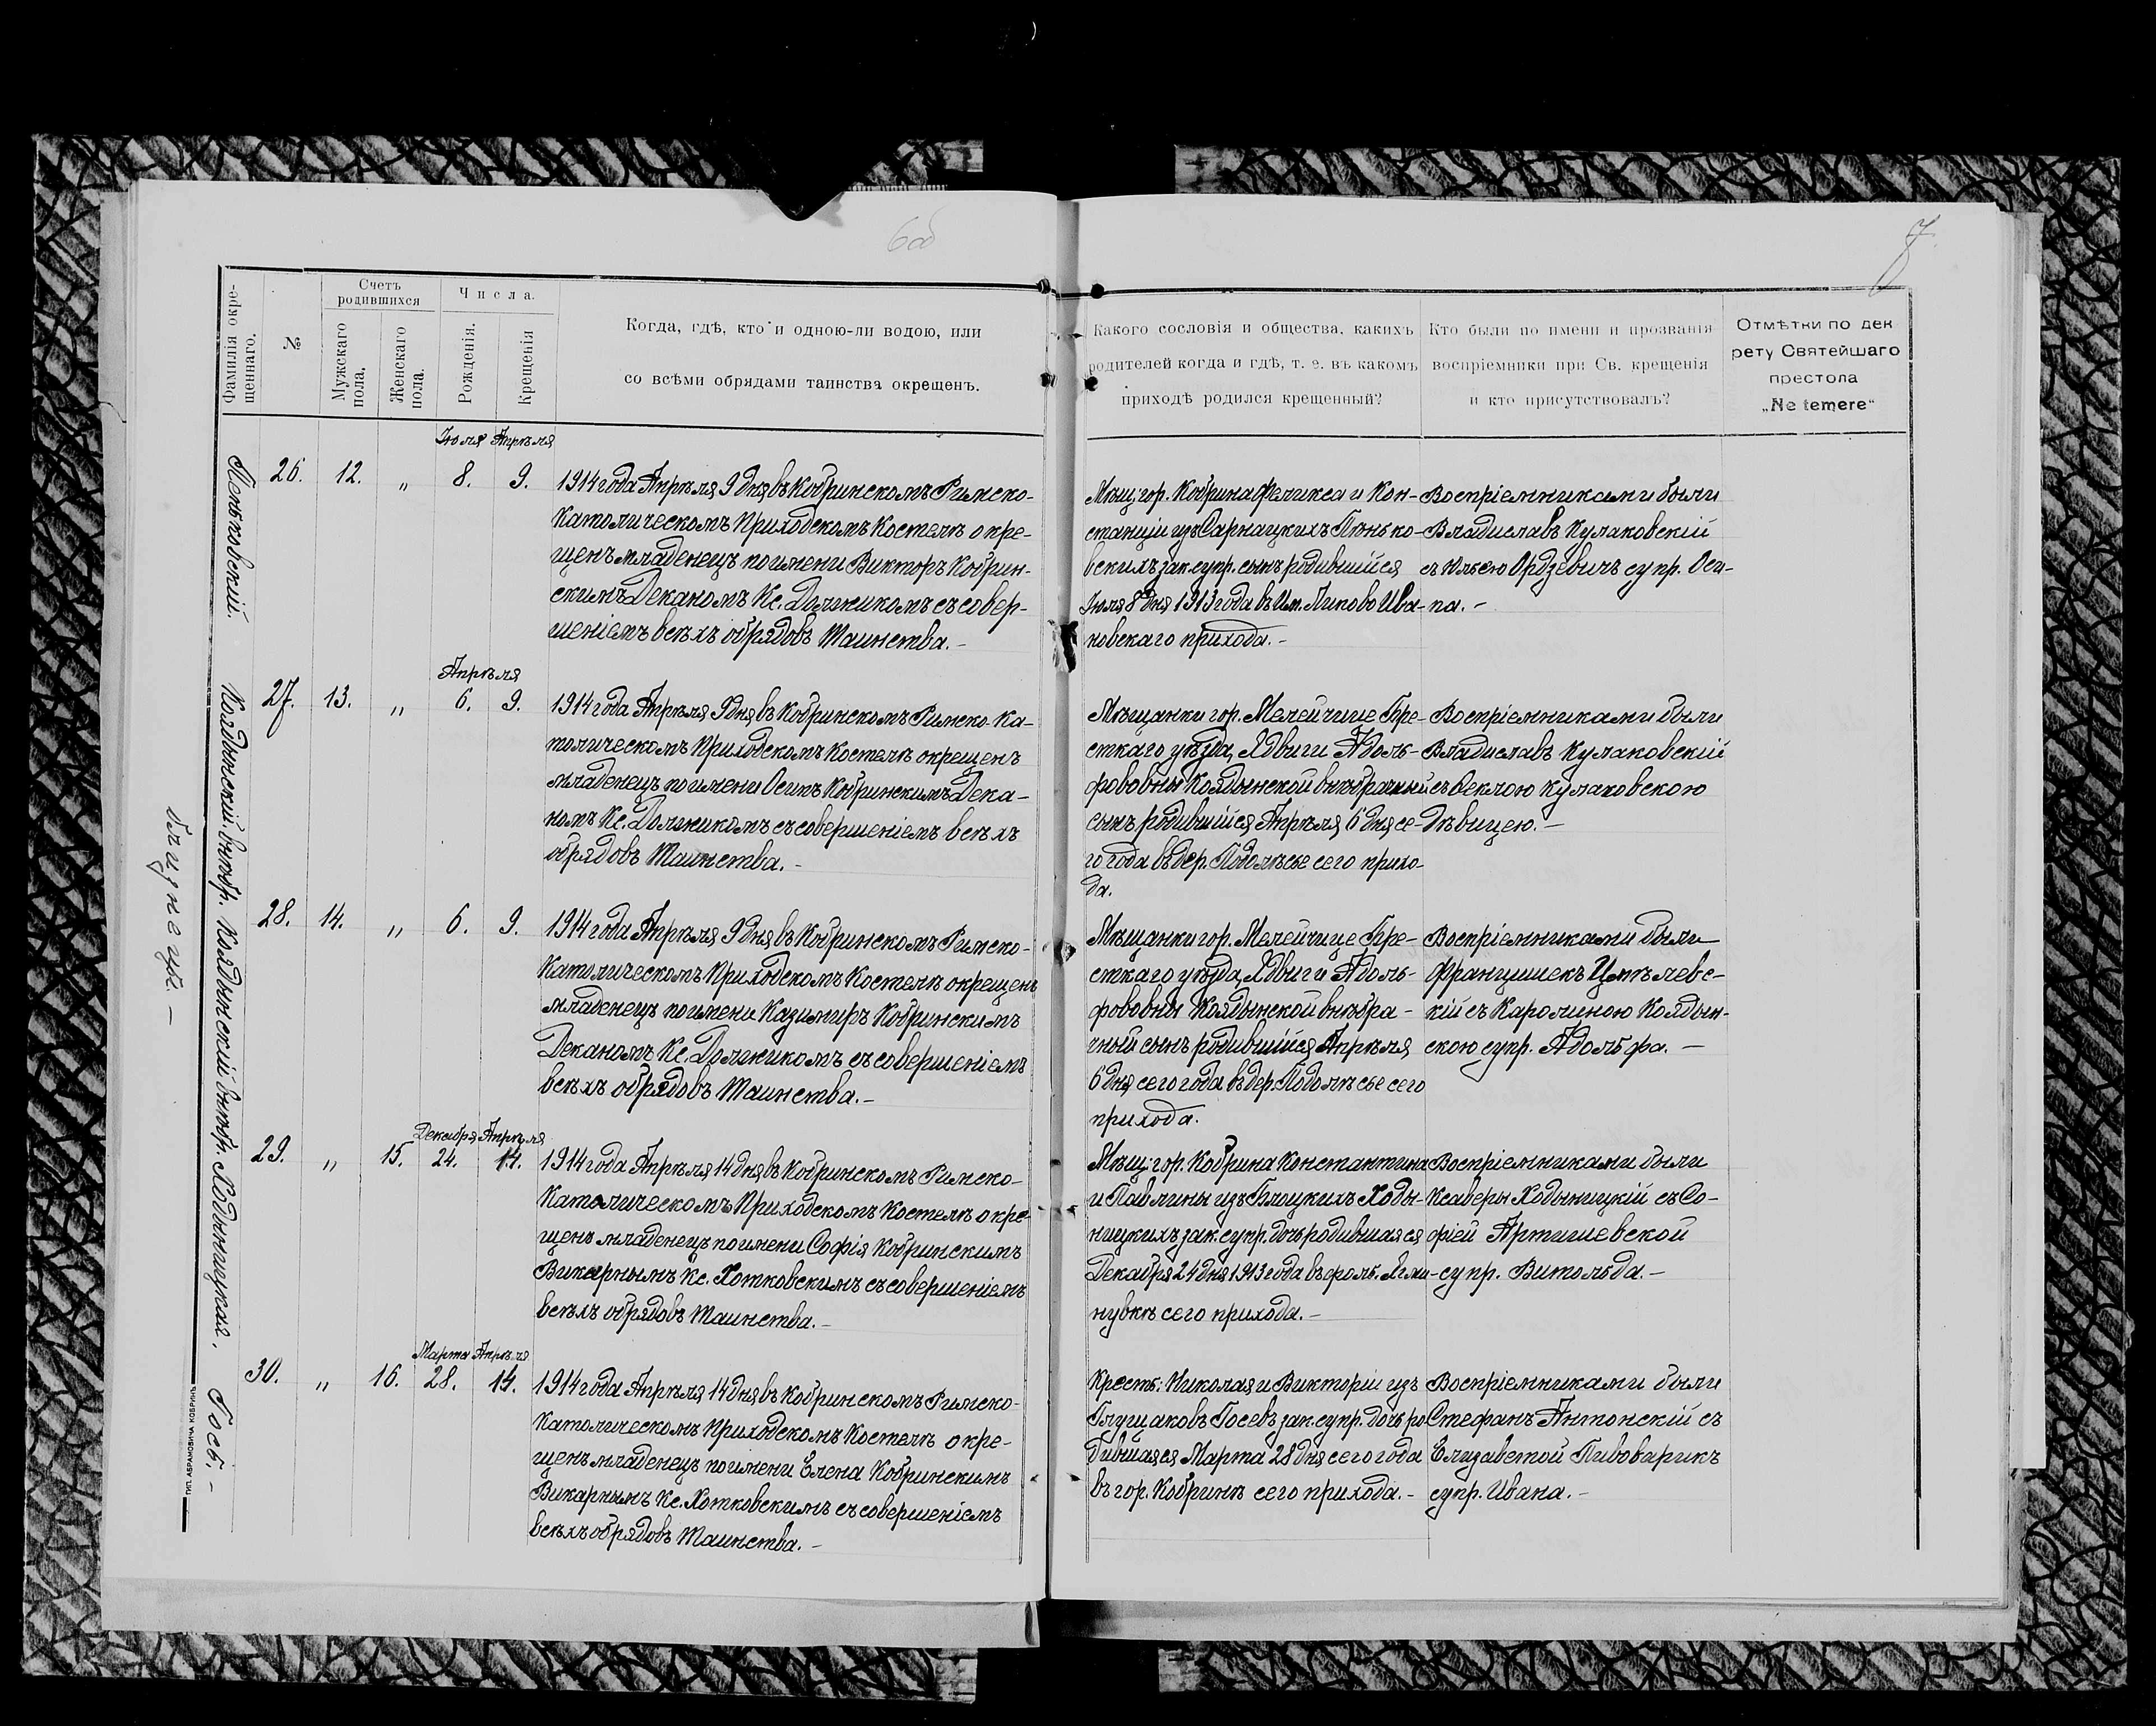 6 об
7.
Фамилія окре-
щеннаго.
№
Счетъ
родившихся
Мужскаго
пола.
Женскаго
пола.
Числа.
Рожденія.
Крещенія
Когда, гдѣ, кто и одною-ли водою, или
со всѣми обрядами таинства окрещенъ.
Какого сословія и общества, какихъ
родителей когда и гдѣ, т. е. въ какомъ
приходѣ родился крещенный?
Кто были по имени и прозванія
воспріемники при Св. крещенія
и кто присутствовалъ?
Отмѣтки по дек
рету Святейшаго
престола
„Ne temere“
Пеньковскій.
Іюля Апрѣля
26. 12. „ 8. 9.
1914 года Апрѣля 9 дня въ Кобринскомъ Римско-
Католическомъ Приходскомъ Костелѣ окре-
щенъ младенецъ по имени Викторъ Кобрин-
скимъ Деканомъ Кс. Дольникомъ съ совер-
шеніемъ всѣхъ обрядовъ Таинства. –
Мѣщ. гор. Кобрина Феликса и Кон-
станціи изъ Сарнацкихъ Пѣнько-
вскихъ зак. супр. сынъ родившійся
Іюля 8 дня 1913 года въ Им. Липово Ива-
новскаго прихода. –
Воспріемниками были
Владиславъ Кулаковскій
съ Юліею Ордзевичъ супр. Оси-
па. –
Коядынскій внѣбр.
Апрѣля
27. 13. „ 6. 9.
1914 года Апрѣля 9 дня въ Кобринскомъ Римско-Ка-
толическомъ Приходскомъ Костелѣ окрещенъ
младенецъ по имени Осипъ Кобринскимъ Дека-
номъ Кс. Дольникомъ съ совершеніемъ всѣхъ
обрядовъ Таинства. –
Мѣщанки гор. Мелейчице Бре-
сткаго уѣзда, Ядвиги Адоль-
фововны Коядынской внѣбрачный
сынъ родившійся Апрѣля 6 дня се-
го года въ дер. Подолѣсье сего прихо-
да.
Воспріемниками были
Владиславъ Кулаковскій
съ Феклою Кулаковскою
Дѣвицею. –
близнецы. –
Коядынскій внѣбр.
28. 14. „ 6. 9.
1914 года Апрѣля 9 дня въ Кобринскомъ Римско-
Католическомъ Приходскомъ Костелѣ окрещенъ
младенецъ по имени Казимиръ Кобринскимъ
Деканомъ Кс. Дольникомъ съ совершеніемъ
всѣхъ обрядовъ Таинства. –
Мѣщанки гор. Мелейчице Бре-
сткаго уѣзда, Ядвиги Адоль-
фововны Коядынской внѣбра-
чный сынъ родившійся Апрѣля
6 дня сего года въ дер. Подолѣсье сего
прихода.
Воспріемниками были
Францишекъ
кій съ Каролиною Коядын-
скою супр. Адольфа. –
Ходыницкая.
Декабря Апрѣля
29. „ 15. 24. 14.
1914 года Апрѣля 14 дня въ Кобринскомъ Римско-
Католическомъ Приходскомъ Костелѣ окре-
щенъ младенецъ по имени Софія Кобринскимъ
Викарнымъ Кс. Хотковскимъ съ совершеніемъ
всѣхъ обрядовъ Таинства. –
Мѣщ. гор. Кобрина Константина
и Павлины изъ Блоцкихъ Ходы-
ницкихъ зак. супр. дочь родившаяся
Декабря 24 дня 1913 года въ фольв.
нувкѣ сего прихода. –
Воспріемниками были
Ксаверы Ходыницкій съ Со-
фіей Артишевской
супр. Витольда. –
Гось. –
Марта Апрѣля
30. „ 16. 28. 14.
1914 года Апрѣля 14 дня въ Кобринскомъ Римско-
Католическомъ Приходскомъ Костелѣ окре-
щенъ младенецъ по имени Елена Кобринскимъ
Викарнымъ Кс. Хотковскимъ съ совершеніемъ
всѣхъ обрядовъ Таинства. –
Крестъ: Николая и Викторіи изъ
Глущаковъ Госевъ зак. супр. дочь ро
дившаяся Марта 28 дня сего года
въ гор. Кобринѣ сего прихода. –
Воспріемниками были
Стефанъ Антонскій съ
Елизаветой Пивоварикъ
супр. Ивана. –
ТИП. АБРАМОВИЧА КОБРИНЪ